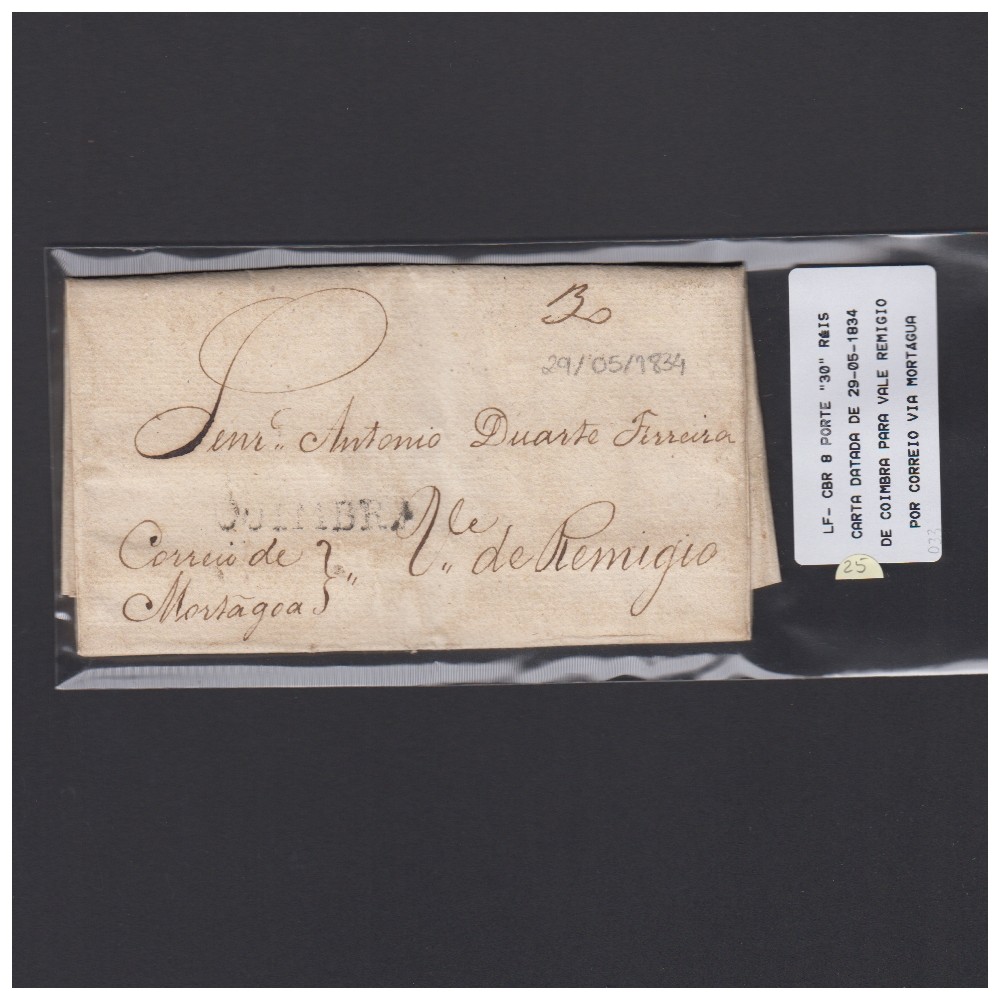 29/05/1834
Senr. Antonio Duarte Ferreira
COIMBRA
Vle de Remigio
Correio de
Mortágoa
LF- CBR 8 PORTE "30" RÉIS
CARTA DATADA DE 29-05-1834
DE COIMBRA PARA VALE REMIGIO
POR CORREIO VIA MORTÁGUA
25
033